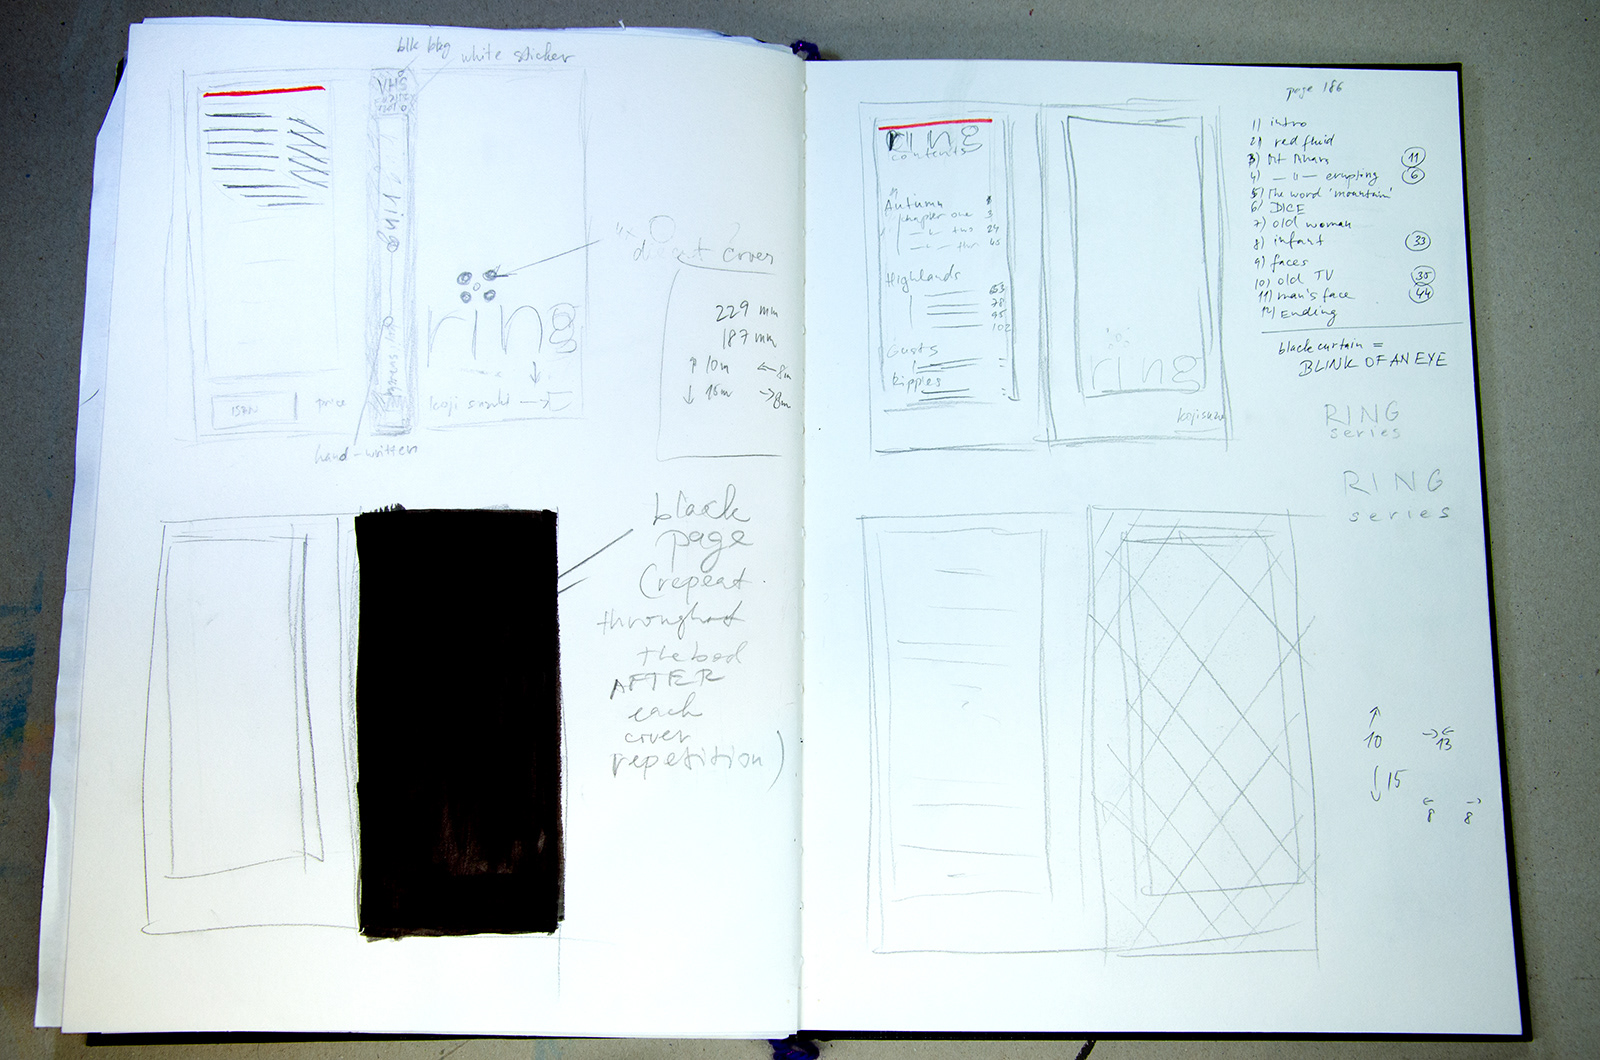 blk bkg
white sticker
VHS
ring
koji suzuki
ring
koji suzuki
ISBN
price
hand-written
4x
diecut cover
229 mm
187 mm
↑ 10m ← 8m
↓ 15m → 8m
black
page
(repeat
throughout
the book
AFTER
each
cover
repetition)
ring
contents
Autumn
chapter one 3
— " — two 24
— " — thr 45
Highlands
63
78
95
102
Gusts
Ripples
ring
koji suzu
page 186
1) intro
2) red fluid
3) Mt Mihara 11
4) — " — erupting 6
5) The word 'mountain'
6) DICE
7) old woman
8) infant 33
9) faces
10) old TV 35
11) man's face 44
12) Ending
black curtain =
BLINK OF AN EYE
RING
series
RING
series
↑
10 →← 13
↓ 15
← →
8 8